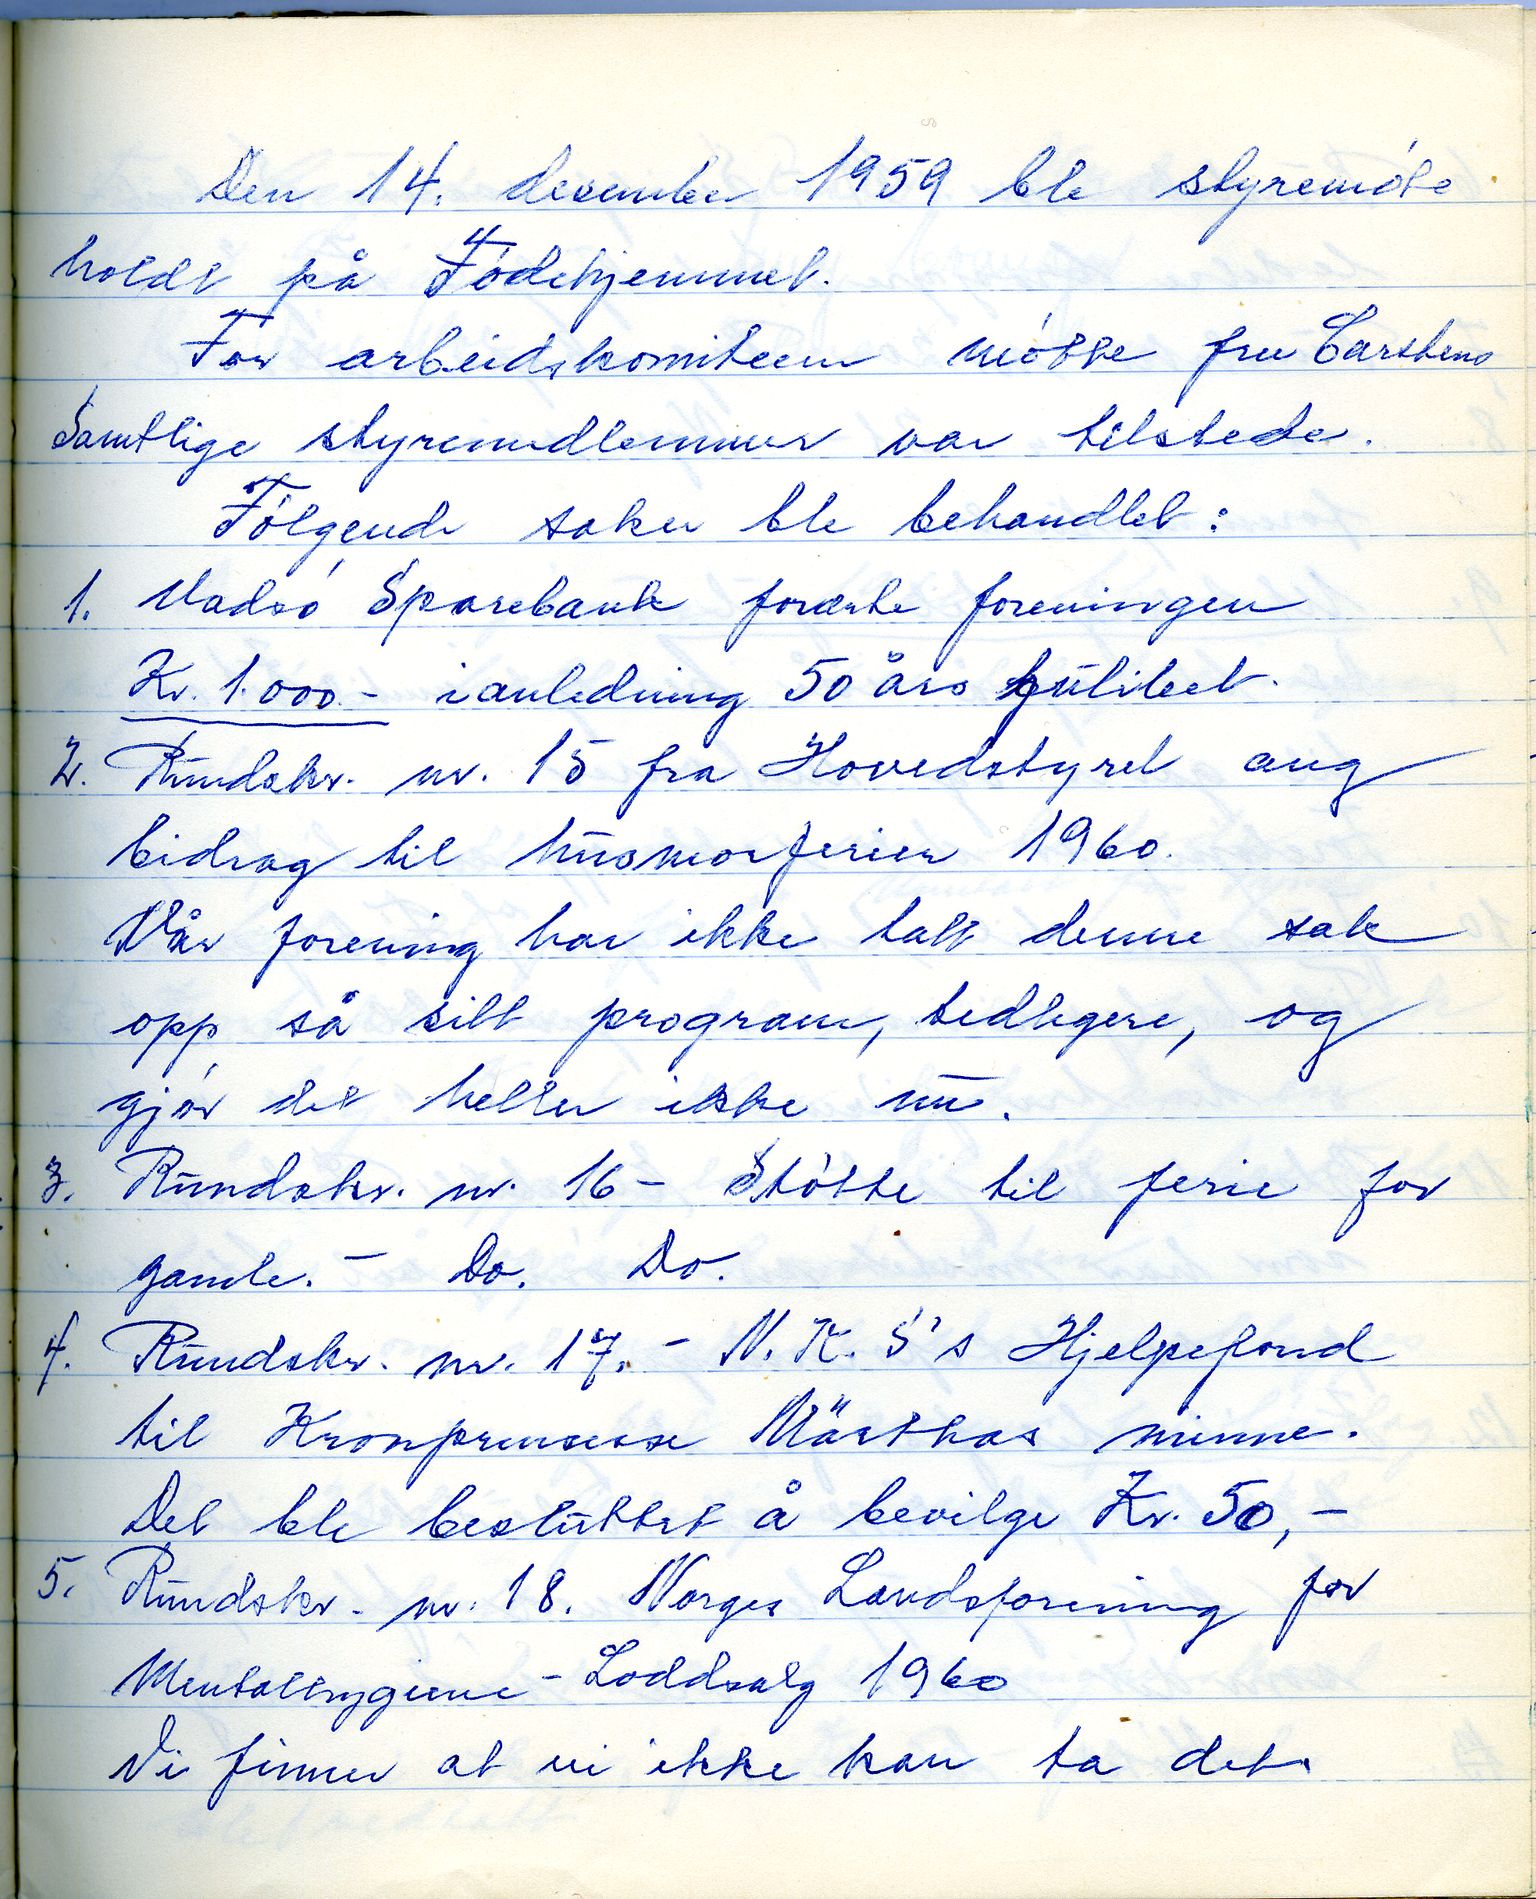 Den 14. desember 1959 ble styremøte
holdt på Fødehjemmet.
For arbeidskomiteen møtte fru Carstens
Samtlige styremedlemmer var tilstede.
Følgende saker ble behandlet:
1. Vadsø Sparebank forærte foreningen
Kr. 1.000.- i anledning 50 års jubileet.
2. Rundskr. nr. 15 fra Hovedstyret ang
bidrag til husmorferien 1960.
Vår forening har ikke tatt denne sak
opp på sitt program, tidligere, og
gjør det heller ikke nu.
3. Rundskr. nr. 16 - Støtte til ferie for
gamle. - Do. Do.
4. Rundskr. nr. 17. - N.K.S's Hjelpefond
til Kronprinsesse Märthas minne.
Det ble besluttet å bevilge Kr. 50,-
5. Rundskr. nr. 18. Norges Landsforening for
Mentalhygiene - Loddsalg 1960
Vi finner at vi ikke kan ta det